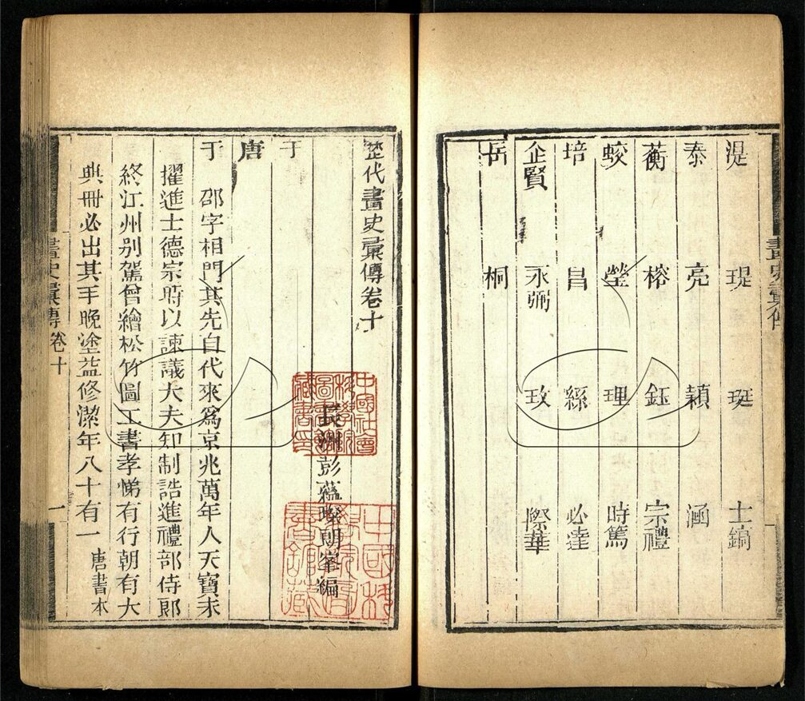 湜 瑅 珽 士鎬
泰 亮 穎 涵
蘅 榕 鈺 宗禮
蛟 瑩 理 時篤
培 昌 繇 必達
企賢 永弼 玫 際華
桐
畫史彙傳
歷代畫史彙傳卷十
長洲彭蘊璨朗峯編
于
唐
于邵字相門其先自代來爲京兆萬年人天寶末
擢進士德宗時以諫議大夫知制誥進禮部侍郎
終江州别駕曾繪松竹圖工書孝悌有行朝有大
典冊必出其手晚塗益修潔年八十有一唐書本
畫史彙傳卷十
一